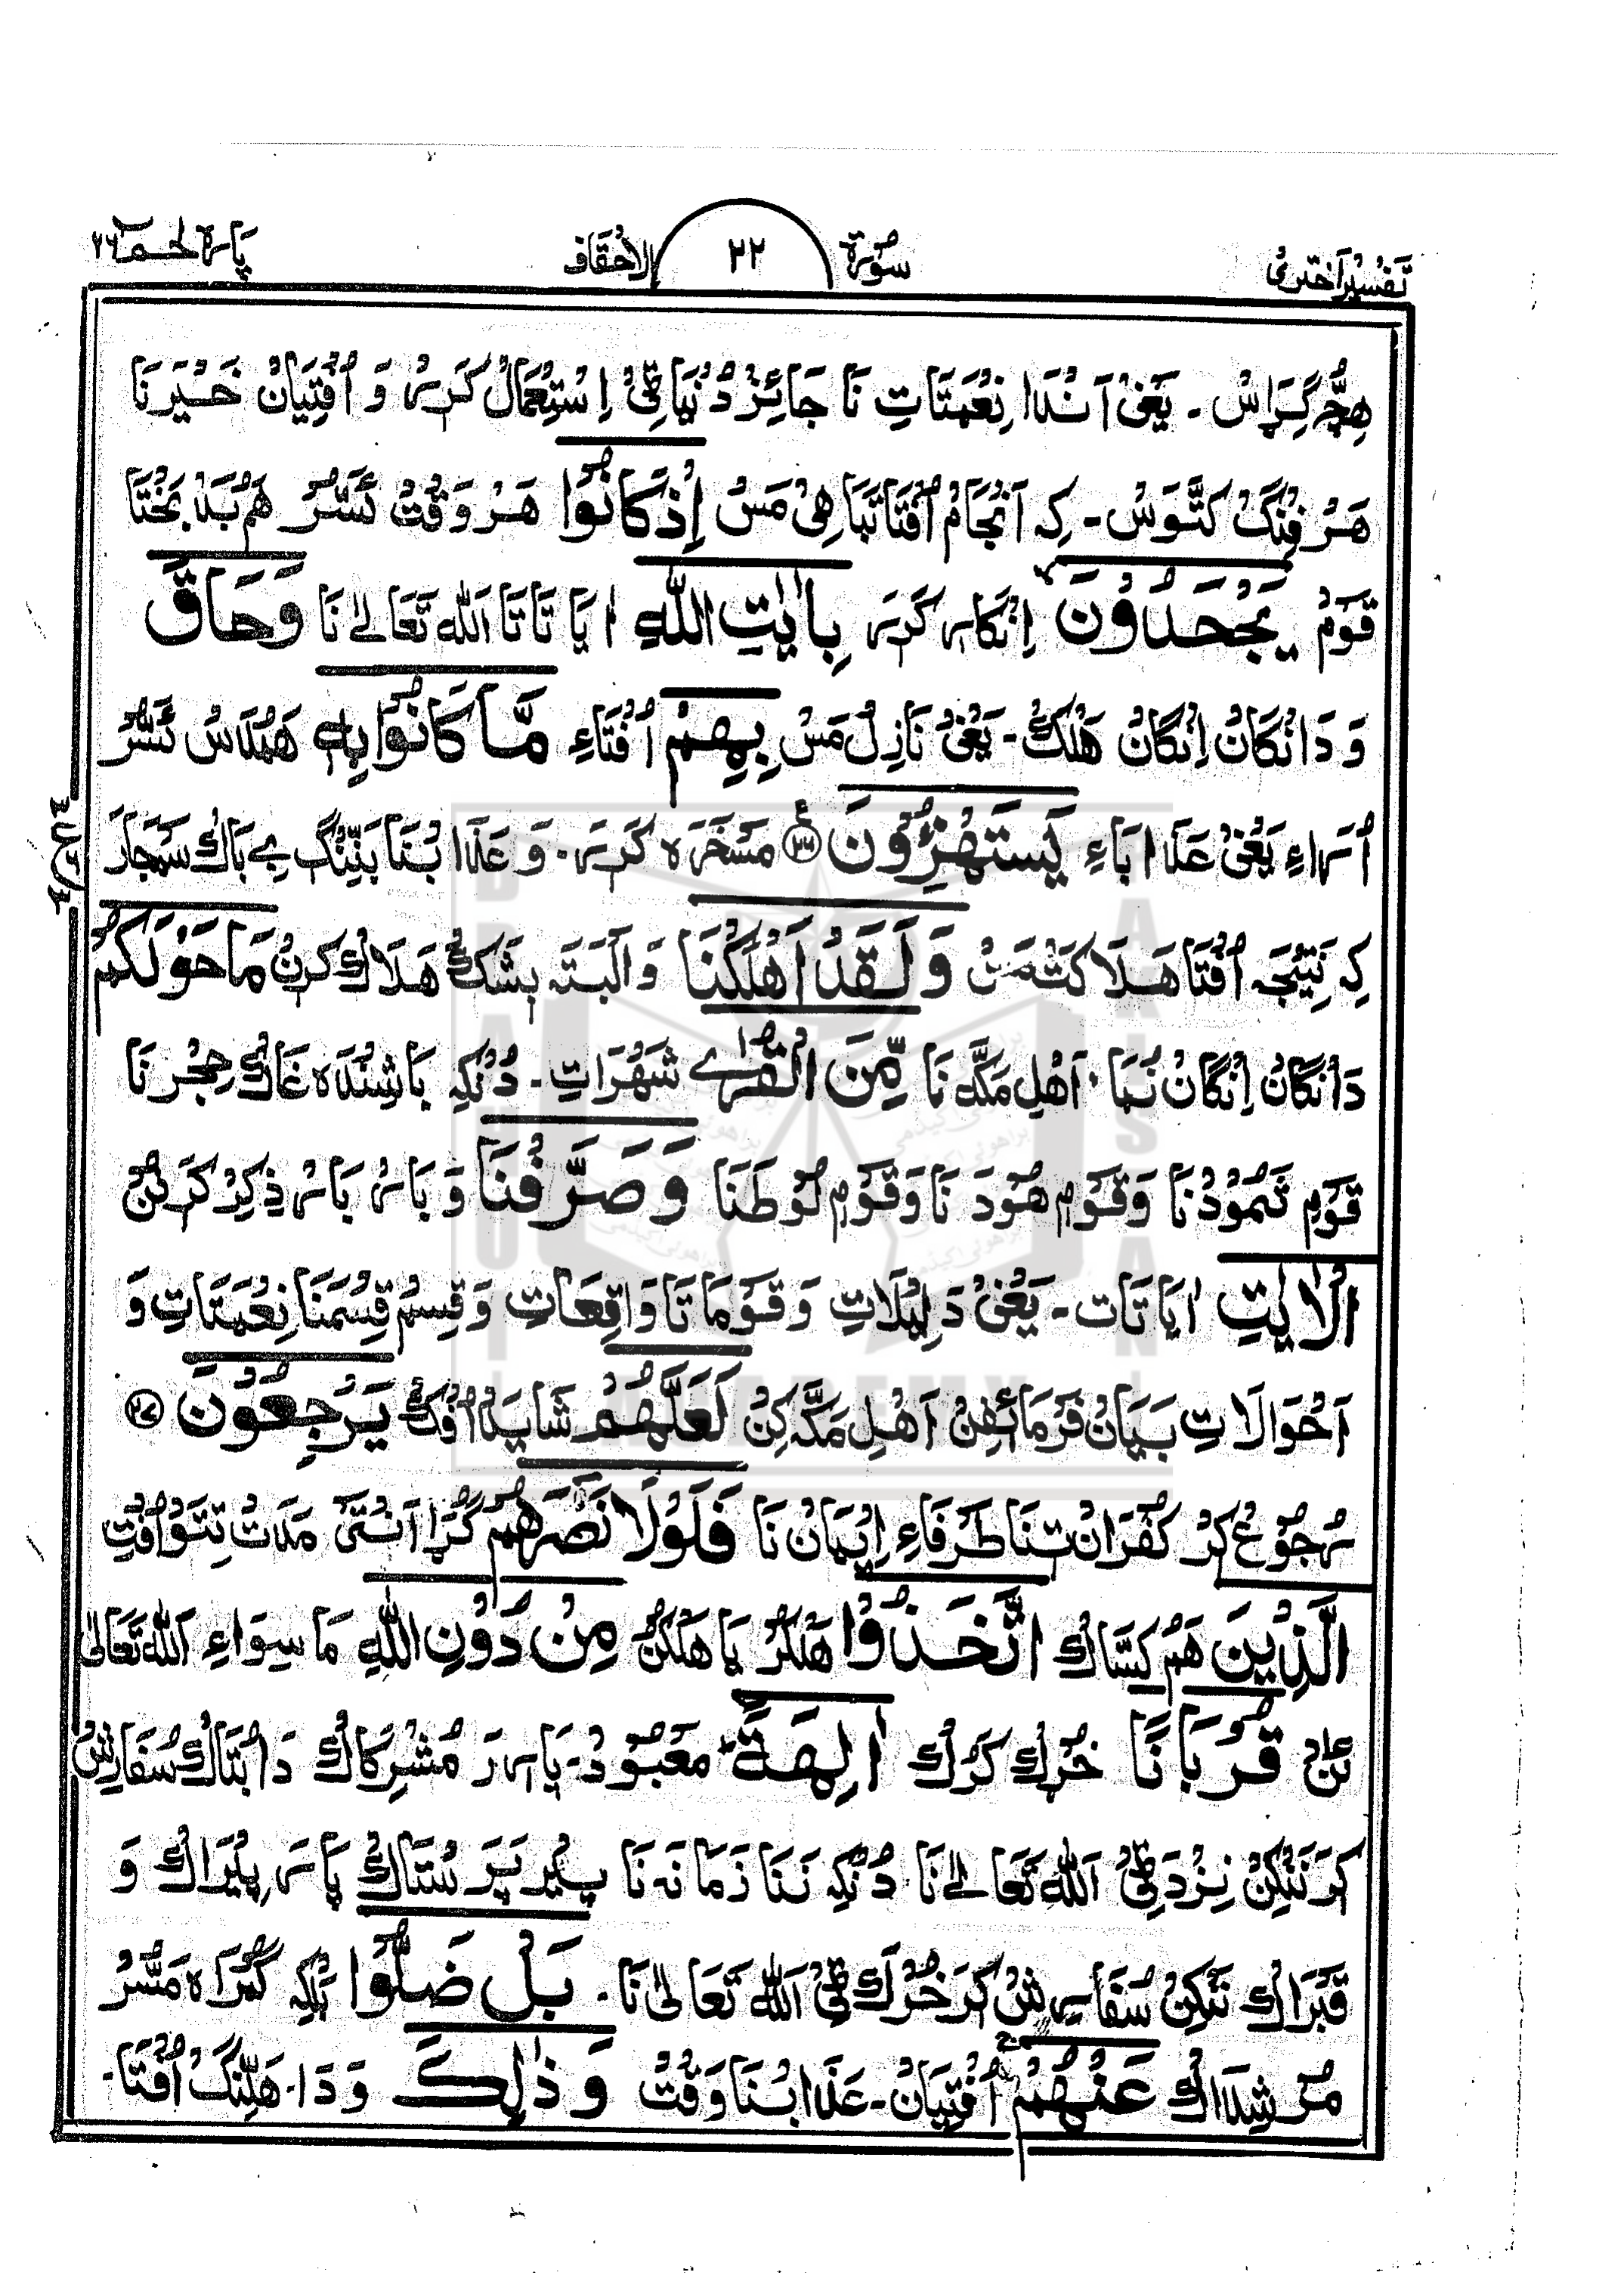 تَفْسِيْرِ اَخْتَرِىْ
سُوْرَة ٢٢ الاَحْقَاف
پَارَه حٰـم ٢٦
هِچّ كِرَاسْ ۔ يَعْنِىْ اَنْدَا نِعْمَتَاتِ نَا جَائِزْ دُنْيَاٹِىْ اِسْتِعْمَالْ كَرِيْرْ وَ اُفْتِيَانْ خَيْرَنَا
هَرْ فِنْگْ كَتَّوَسْ ۔ كِہ اَنْجَامْ اُفْتَا تَبَاهِىْ مَسْ اِذْ كَانُوْا هَرْ وَقْتْ ئَسُّرْ هَمْ بَدْ بَخْتَا
قَوْمْ يَجْحَدُوْنَ اِنْكَارْ كَرِيْرَ بِاٰيٰتِ اللّٰهِ اٰيَا تَا تَا اَللّٰه تَعَالٰے نَا وَحَاقَ
وَ دَانْگَانْ اِنْگَانْ هَلْكْ ۔ يَعْنِىْ نَازِلْ مَسْ بِهِمْ اُفْتَاءِ مَّا كَانُوْا بِهٖ هَمْدَاسْ ئَسُّرْ
اُرَاءِ يَعْنِىْ عَذَابَاءِ يَسْتَهْزِءُوْنَ ﴿٢٦﴾ مَسْخَرَه كَرِيْرَ ۔ وَ عَذَابْنَا بَنِّنْگِ بے بَاكْ سَمْجَارَ
كِہ نَتِيْجَہ اُفْتَا هَلَاكَتْ مَسْ وَلَقَدْ اَهْلَكْنَا وَ اَلْبَتَہ بِشَكْ هَلَاكْ كَرِنْ مَا حَوْلَكُمْ
دَانْگَانْ اِنْگَانْ نُمَا ۔ اَهْلِ مَكَّہ نَا مِّنَ الْقُرٰے شَهْرَاتِ ۔ دُنْكِہ بَاشِنْدَه غَاكْ حِجْرْ نَا
قَوْمِ ثَمُوْدْنَا وَ قَوْمِ هُوْدْ نَا وَ قَوْمِ لُوْطْنَا وَصَرَّفْنَا وَ بَارْ بَارْ ذِكِرْ كَرِنْ
الْاٰيٰتِ اٰيَا تَات ۔ يَعْنِىْ دَلِيْلَاتِ وَ قَوْمَا تَا وَاقِعَاتِ وَ قِسْم قِسْمَنَا نِعْمَتَاتِ وَ
اَحْوَالَاتِ بَيَانْ فَرْمَائِفِنْ اَهْلِ مَكَّہ كِنْ لَعَلَّهُمْ شَايَدْ اُفْكْ يَرْجِعُوْنَ ﴿٢٧﴾
رُجُوْعْ كَرْ كُفْرَانْ تِنَا طَرْفَاءِ اِيْمَانْ نَا فَلَوْلَا نَصَرَهُمُ گُرَا اَنْتَئْ مَدَتْ تِتَوْ اُفْتِ
الَّذِيْنَ هَمْ كَسَّاكْ اتَّخَذُوْا هَلْكُرْ يَا هَلْكُنْ مِنْ دُوْنِ اللّٰهِ مَا سِوَاءِ اَللّٰه تَعَالٰى
نَا قُرْبَانًا خُرْكْ كَرُكْ اٰلِهَةً مَعْبُوْدْ ۔ پَارِيْرَ مُشْرِكَاكْ دَا بُتَاكْ سُفَارِشْ
كَرَ نَنْكِنْ نِزْدَ ٹِىْ اَللّٰه تَعَالٰے نَا دُنْكِہ نَنَا زَمَانَہ نَا پِيْر پَرَسْتَاكْ پَارَه پِيْرَاكْ وَ
قَبْرَاكْ نَنْكِنْ سُفَارِشْ كَرَ خُرْكْ ٹِىْ اَللّٰه تَعَالٰى نَا ۔ بَلْ ضَلُّوْا بَلْكِہ گُمْرَاه مَسُّرْ
مُرْشِدَاكْ عَنْهُمْ اُفْتِيَانْ ۔ عَذَابْنَا وَقْتْ وَذٰلِكَ وَ دَا ۔ هَلِّنْگْ اُفْتَا ۔